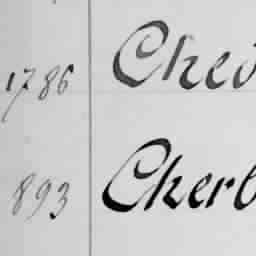 1786 Ched
893 Ckerb